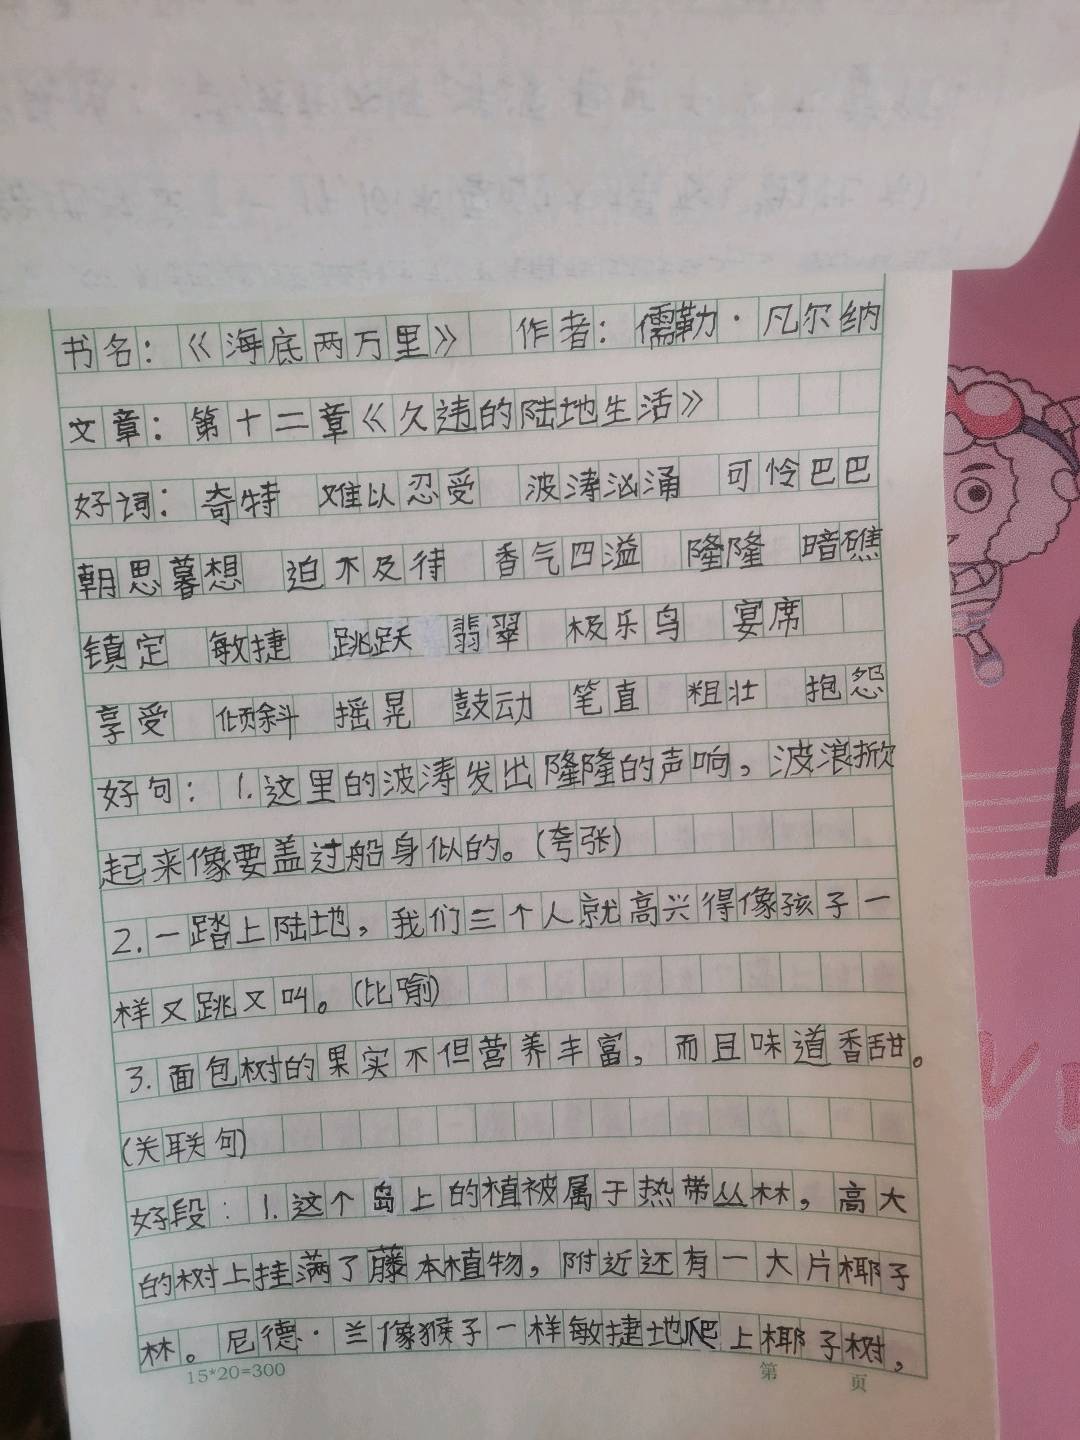 书名：《海底两万里》 作者：儒勒·凡尔纳
文章：第十二章《久违的陆地生活》
好词：奇特 难以忍受 波涛汹涌 可怜巴巴
朝思暮想 迫不及待 香气四溢 隆隆 暗礁
镇定 敏捷 跳跃 翡翠 极乐鸟 宴席
享受 倾斜 摇晃 鼓动 笔直 粗壮 抱怨
好句：1.这里的波涛发出隆隆的声响，波浪掀
起来像要盖过船身似的。(夸张)
2.一踏上陆地，我们三个人就高兴得像孩子一
样又跳又叫。(比喻)
3.面包树的果实不但营养丰富，而且味道香甜。
(关联句)
好段：1.这个岛上的植被属于热带丛林，高大
的树上挂满了藤本植物，附近还有一大片椰子
林。尼德·兰像猴子一样敏捷地爬上椰子树，
15*20=300 第 页